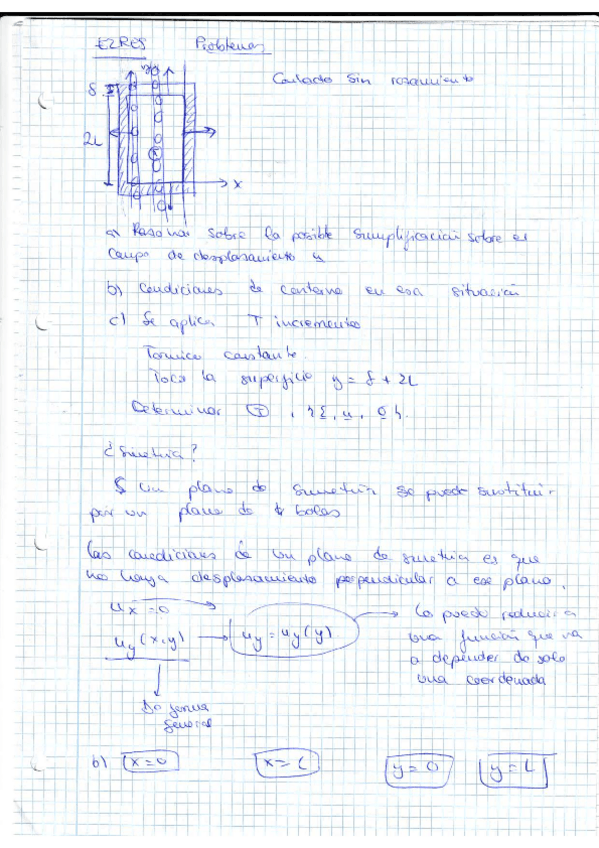 EZRES Problemas
Contacto sin rozamiento
δ
2L
x
a) Razonar sobre la posible simplificación sobre el
campo de desplazamiento u
b) Condiciones de contorno en esa situación
c) Se aplica T incremento
Térmico constante
Toca la superficie y = δ + 2L
Determinar T, u, σ
¿Simetría?
Un plano de simetría se puede sustituir
por un plano de bolas
Las condiciones de un plano de simetría es que
no haya desplazamiento perpendicular a ese plano.
ux = 0
uy (x,y) → uy = uy (y) → Lo puedo reducir a
una función que va
a depender de solo
una coordenada
De forma
general
b) x=0 x=L y=0 y=L